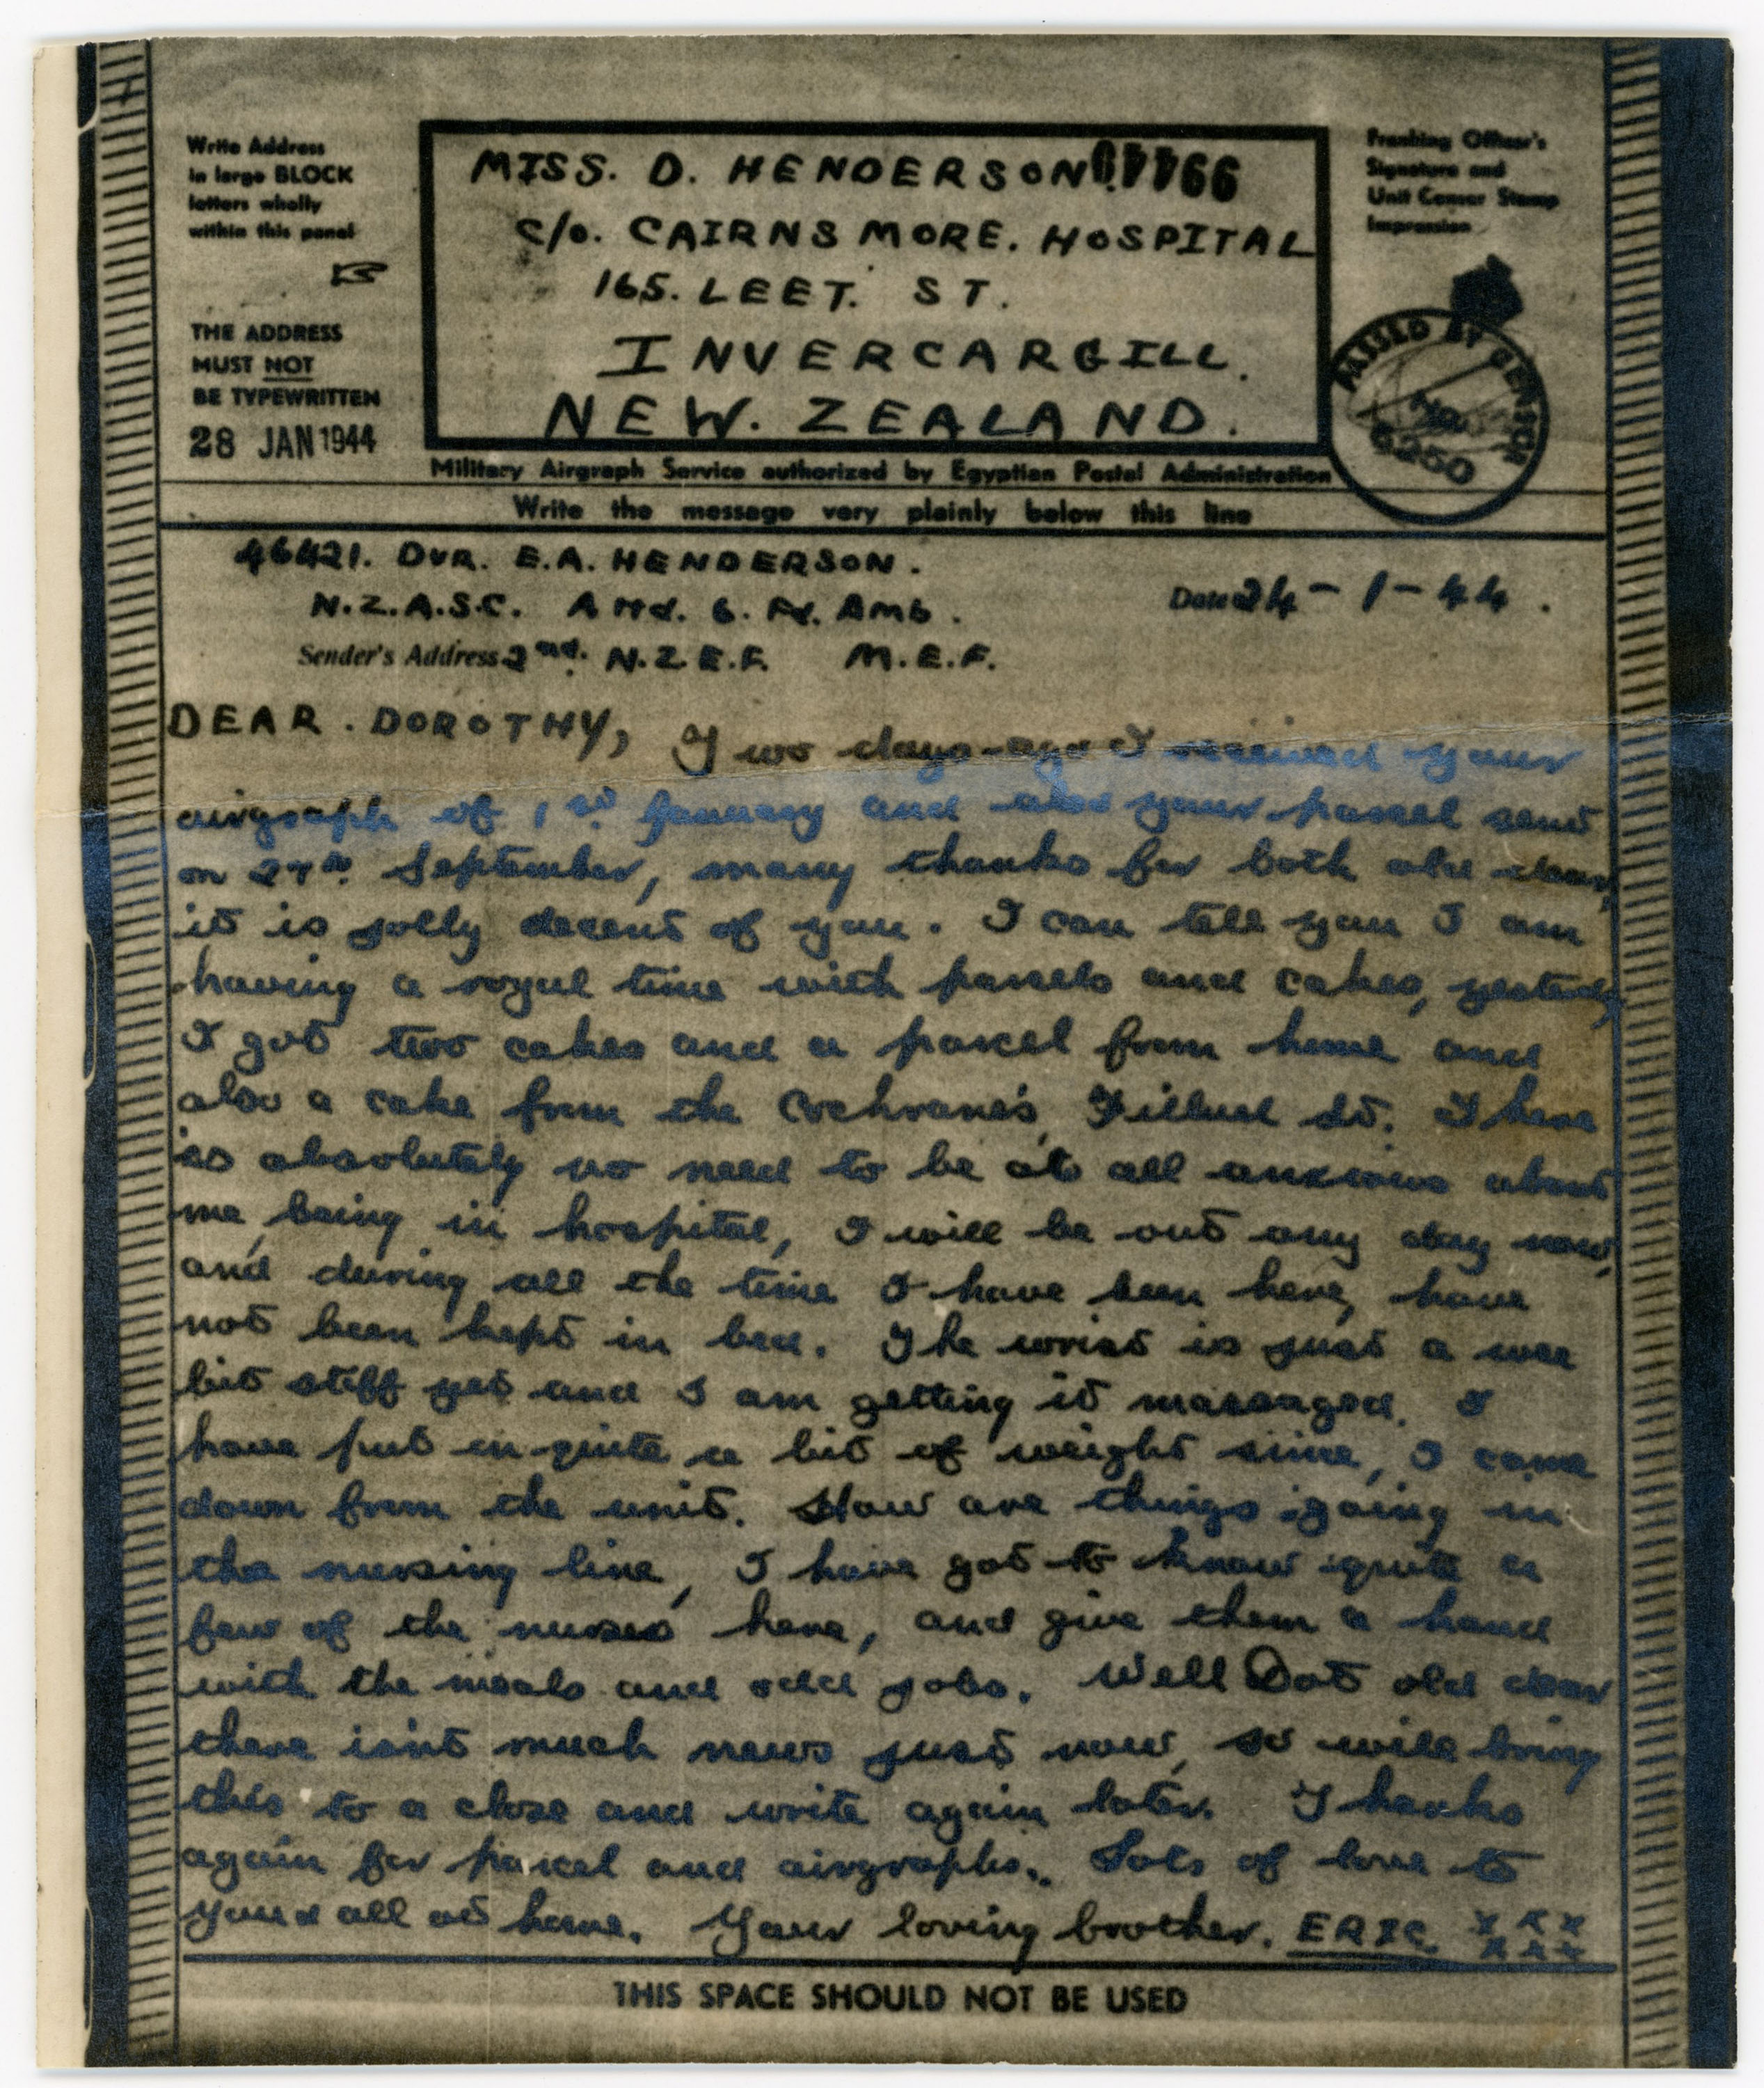 Write Address
in large BLOCK
letters wholly
within this panel
THE ADDRESS
MUST NOT
BE TYPEWRITTEN
28 JAN 1944
MISS. D. HENDERSON
C/O. CAIRNSMORE. HOSPITAL
165. LEET. ST.
INVERCARGILL.
NEW. ZEALAND.
Franking Officer's
Signature and
Unit Censor Stamp
Impression
PASSED BY CENSOR
No.
6250
Military Airgraph Service authorized by Egyptian Postal Administration
Write the message very plainly below this line
46421. DVR. E.A. HENDERSON.
N.Z.A.S.C. Attd. 6. Fd. Amb.
Date 24-1-44.
Sender's Address 2nd. N.Z.E.F. M.E.F.
DEAR. DOROTHY, Two days ago I received your
airgraph of 1st January and also your parcel sent
on 27th September, many thanks for both old dear,
it is jolly decent of you. I can tell you I am
having a royal time with parcels and cakes, yesterday
I got two cakes and a parcel from home and
also a cake from the Cochrane's, St. There
is absolutely no need to be at all anxious about
me, being in hospital, I will be out any day now,
and during all the time I have been here, have
not been kept in bed. The wrist is just a wee
bit stiff yet and I am getting it massaged. I
have put on quite a bit of weight since, I came
down from the unit. How are things going in
the nursing line, I have got to know quite a
few of the nurses here, and give them a hand
with the meals and odd jobs. Well Dot old dear
there isn't much news just now, so will bring
this to a close and write again later. Thanks
again for parcel and airgraphs. Lots of love to
you & all at home. Your loving brother. ERIC. XXX
XXX
THIS SPACE SHOULD NOT BE USED